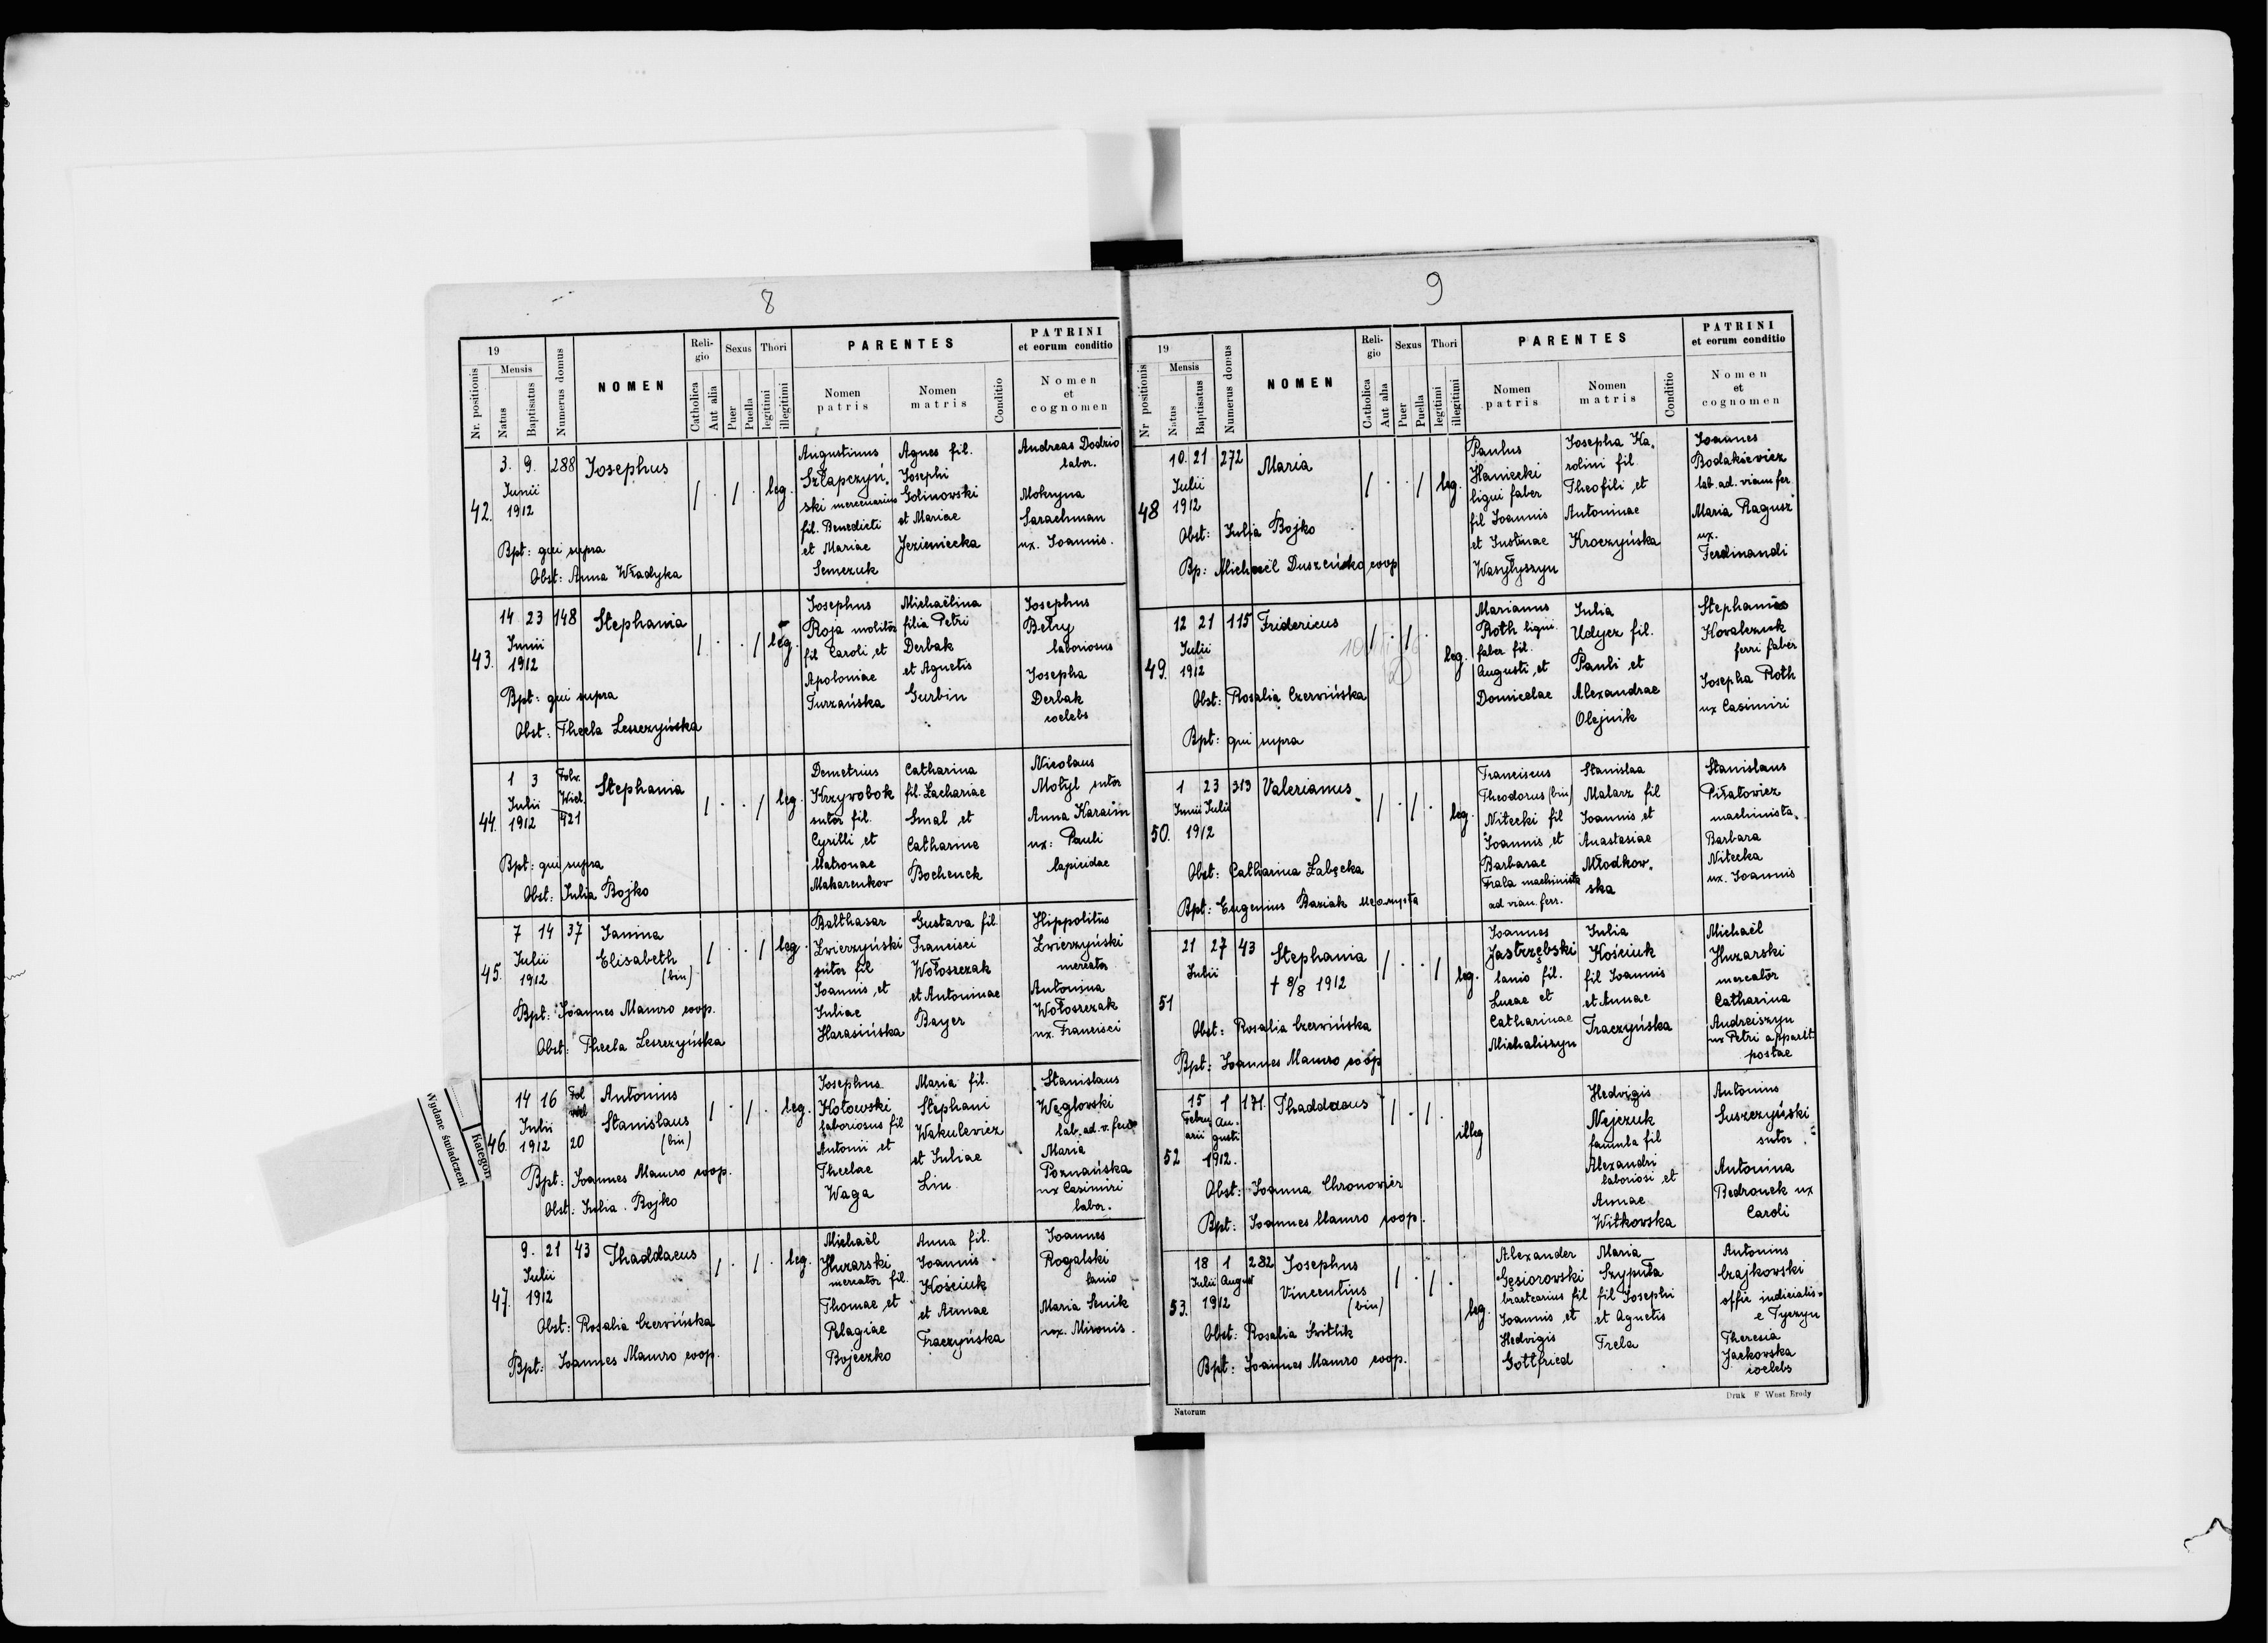 8
19
Nr. positionis
Mensis
Natus
Baptisatus
Numerus domus
NOMEN
Religio
Catholica
Aut alia
Sexus
Puer
Puella
Thori
legitimi
illegitimi
PARENTES
Nomen patris
Nomen matris
Conditio
PATRINI
et eorum conditio
Nomen
et
cognomen
42.
3. 9. 288 Josephus
Junii
1912
/ . / . leg.
Bpt: qui supra
Obst: Anna Władyka
Augustinus
Szłapczyń-
ski mercenarius
fil. Benedicti
et Mariae
Semczuk
Agnes fil.
Josephi
Golinowski
et Mariae
Jezieniecka
Andreas Dodzio
labor.
Mokryna
Sarachman
ux. Joannis.
43.
14 23 148 Stephania
Junii
1912
/ . . / leg.
Bpt: qui supra
Obst: Thecla Leszczyńska
Josephus
Roja molitor
fil Caroli, et
Apoloniae
Turzańska
Michaëlina
filia Petri
Derbak
et Agnetis
Gurbin
Josephus
Bełuy
laboriosus
Josepha
Derbak
coelebs
44.
1 3 Folw. Wiel. 421 Stephania
Julii
1912
/ . . / leg.
Bpt: qui supra
Obst: Julia Bojko
Demetrius
Krzywobok
sutor fil.
Cyrilli et
Matronae
Makarenkow
Catharina
fil. Zachariae
Smal et
Catharinae
Bochenek
Nicolaus
Motyl sutor
Anna Karaim
ux: Pauli
lapicidae
45.
7 14 37 Janina
Julii Elisabeth
1912 (bin)
/ . . / leg.
Bpt: Joannes Mauro coop.
Obst: Thecla Leszczyńska
Balthasar
Zwierzyński
sutor fil
Joannis, et
Juliae
Harasińska
Gustava fil
Francisci
Wołoszczak
et Antoninae
Bayer
Hippolitus
Zwierzyński
mercator
Antonina
Wołoszczak
ux. Francisci
46.
14 16 Fol wiel 20 Antonius
Julii Stanislaus
1912 (bin)
/ . / . leg.
Bpt: Joannes Mauro coop.
Obst: Julia Bojko
Josephus
Kołowski
laboriosus fil
Antonii et
Theclae
Waga
Maria fil.
Stephani
Wakulewicz
et Juliae
Lin
Stanislaus
Węglowski
lab. ad. v. ferr
Maria
Poznańska
ux Casimiri
labor.
47.
9. 21 43 Thaddaeus
Julii
1912
/ . / . leg.
Obst: Rosalia Czerwińska
Bpt: Joannes Mauro coop.
Michaël
Huzarski
mercator fil.
Thomae et
Pelagiae
Bojeczko
Anna fil.
Joannis
Kościuk
et Annae
Traczyńska
Joannes
Rogalski
lanio
Maria Senik
ux. Mironis.
Kategor
Wydane świadczeni
9
19
Nr positionis
Mensis
Natus
Baptisatus
Numerus domus
NOMEN
Religio
Catholica
Aut alia
Sexus
Puer
Puella
Thori
legitimi
illegitimi
PARENTES
Nomen patris
Nomen matris
Conditio
PATRINI
et eorum conditio
Nomen
et
cognomen
48
10. 21 272 Maria
Julii
1912
/ . . / leg.
Obst: Julja Bojko
Bp: Michaël Duszeńko coop
Paulus
Haniecki
ligni faber
fil Joannis
et Justinae
Wasyłyszyn
Josepha Ka-
rolini fil.
Theofili et
Antoninae
Kroczyńska
Joannes
Bodakiewicz
lab. ad. viam fer.
Maria Ragusz
ux.
Ferdinandi
49.
12 21 115 Fridericus
Julii
1912
/ . / . leg.
Obst: Rosalia Czerwińska
Bpt: qui supra
Marianus
Roth ligni
faber fil.
Augusti, et
Domicelae
Julia
Udycz fil.
Pauli et
Alexandrae
Olejnik
Stephanus
Kowalczuk
ferri faber
Josepha Roth
ux Casimiri
50.
1 23 313 Valerianus
Junii Julii
1912
/ . / . leg.
Obst: Catharina Łabęcka
Bpt: Eugenius Baziak
Franciscus
Theodorus (bin)
Nitecki fil
Joannis et
Barbarae
Frala machinista
ad viam. ferr.
Stanislaa
Malarz fil
Joannis et
Anastasiae
Młodkow-
ska
Stanislaus
Piłatowicz
machinista.
Barbara
Nitecka
ux. Joannis
51
21 27 43 Stephania
Julii † 8/8 1912
/ . . / leg.
Obst: Rosalia Czerwińska
Bpt: Joannes Mauro coop
Joannes
Jastrzębski
lanio fil.
Lucae et
Catharinae
Michaliszyn
Julia
Kościuk
fil Joannis
et Annae
Traczyńska
Michaël
Huzarski
mercator
Catharina
Andreiszyn
ux Petri apparit
postae
52
15 1 171. Thaddaeus
Februarii Augusti
1912.
/ . / . illeg
Obst: Joanna Chronowier
Bpt: Joannes Mauro coop.
Hedvigis
Nejczuk
famula fil
Alexandri
laboriosi et
Annae
Witkowska
Antonius
Suszczyński
sutor
Antonina
Bedronek ux
Caroli
53.
18 1 282 Josephus
Julii August Vincentius
1912 (bin)
/ . / . leg.
Obst: Rosalia Switlik
Bpt: Joannes Mauro coop.
Alexander
Gęsiorowski
bractearius fil
Joannis et
Hedvigis
Gottfried
Maria
Szypuła
fil Josephi
et Agnetis
Trela
Antonius
Czajkowski
offic iudicialis
e Tyczyn
Theresia
Jackowska
coelebs
Natorum
Druk F West Brody